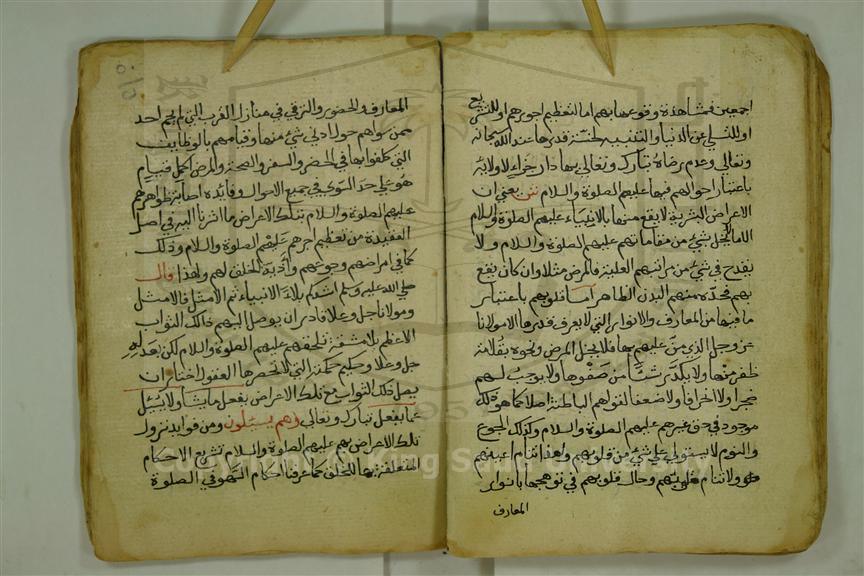 اجمعين فمشاهدة وقوعها بهم اما لتعظيم اجورهم او للتشريع
او للتسلي عن الدنيا والتنبيه لخسة قدرها عند الله سبحانه
وتعالى وعدم رضاه تبارك وتعالى بها دار جزاء لاوليائه
باعتبار احوالهم فيها عليهم الصلوة والسلام ش يعني ان
الاعراض البشرية لا يقع منها بالانبياء عليهم الصلوة والسلام
الا ما لا يخل بشيء من مقاماتهم عليهم الصلوة والسلام ولا
يقدح في شيء من مراتبهم العلية فالمرض مثلا وان كان يقع
بهم فحده منهم البدن الظاهر اما قلوبهم باعتبار
ما فيها من المعارف والانوار التي لا يعرف قدرها الا مولانا
عز وجل الذي من عليهم بها فلا يخل المرض ونحوه بقلامة
ظفر منها ولا يكدر شيئا من صفوها ولا يوجب لهم
ضجرا ولا انحرافا ولا ضعفا لقواهم الباطنة اصلا كما هو كذلك
موجود في حق غيرهم عليهم الصلوة والسلام وكذلك الجوع
والنوم لا يستولي على شيء من قلوبهم ولهذا تنام اعينهم
ولا تنام قلوبهم وحال قلوبهم في توهجها بانوار
المعارف
المعارف والحضور والترقي في منازل القرب التي لم يحم احد
ممن سواهم حول ادنى شيء منها وقيامهم بالوظايف
التي كلفوا بها في الحضر والسفر والصحة والمرض اكمل قيام
هو على حد السوى في جميع الاحوال وفائدة اصابة ظواهرهم
عليهم الصلوة والسلام بتلك الاعراض ما اشرنا اليه في اصل
العقيدة من تعظيم اجرهم عليهم الصلوة والسلام وذلك
كما في امراضهم وجوعهم واذية الخلق لهم ولهذا قال
صلى الله عليه وسلم اشدكم بلاء الانبياء ثم الامثل فالامثل
ومولانا جل وعلا قادر ان يوصل اليهم ذلك الثواب
الاعظم بلا مشقة تلحقهم عليهم الصلوة والسلام لكن بعدله
جل وعلا وحكيم حكمته التي لا تحصرها العقول اختار ان
يصل ذلك الثواب مع تلك الاعراض يفعل ما يشا ولا يسئل
عما يفعل تبارك وتعالى وهم يسئلون ومن فوايد نزول
تلك الاعراض بهم عليهم الصلوة والسلام تشريع الاحكام
المتعلقة بها للخلق كما عرفنا احكام السهو في الصلوة
Copyright © King Saud University
1957